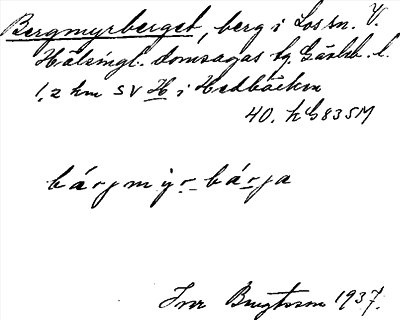 Bergmyrberget, berg i Los sn. V.
Hälsingl. domsagas tg. Gävleb. l.
1,2 km SV H i Hedbäcken
40. kG 835M
bárjmyr-bárja
Ivar Bengtsson 1937.